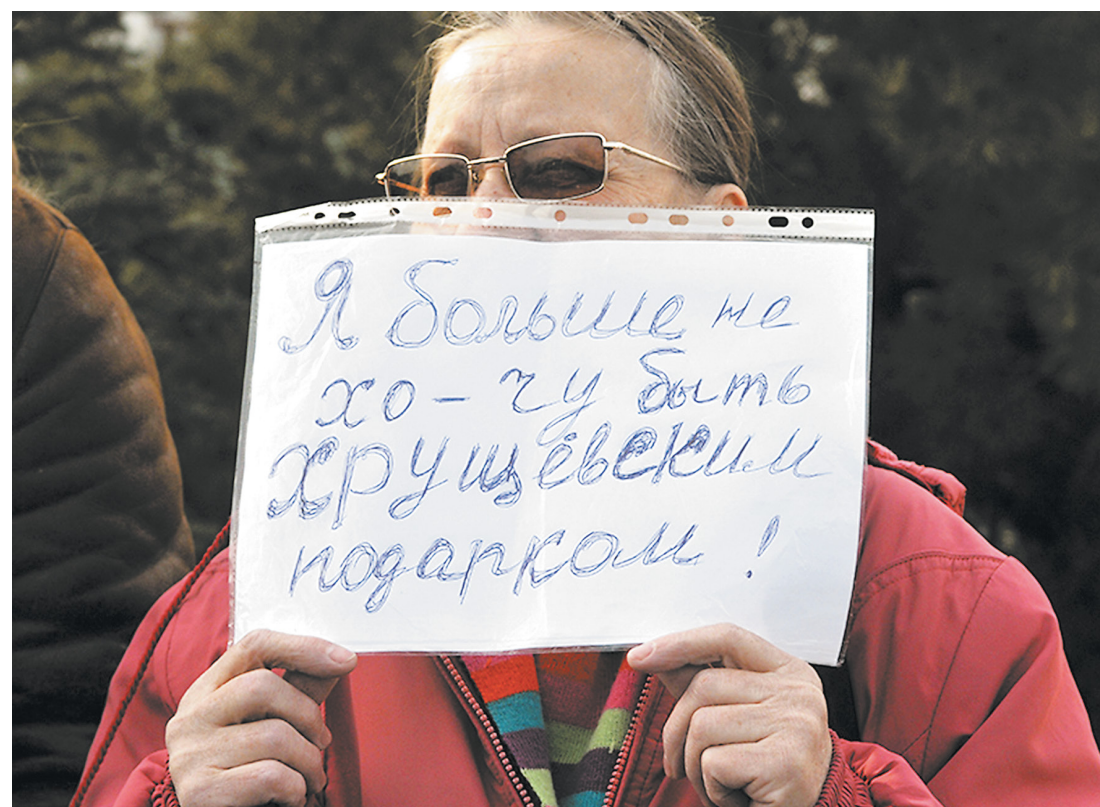 Я больше не
хо-чу быть
хрущёвским
подарком!